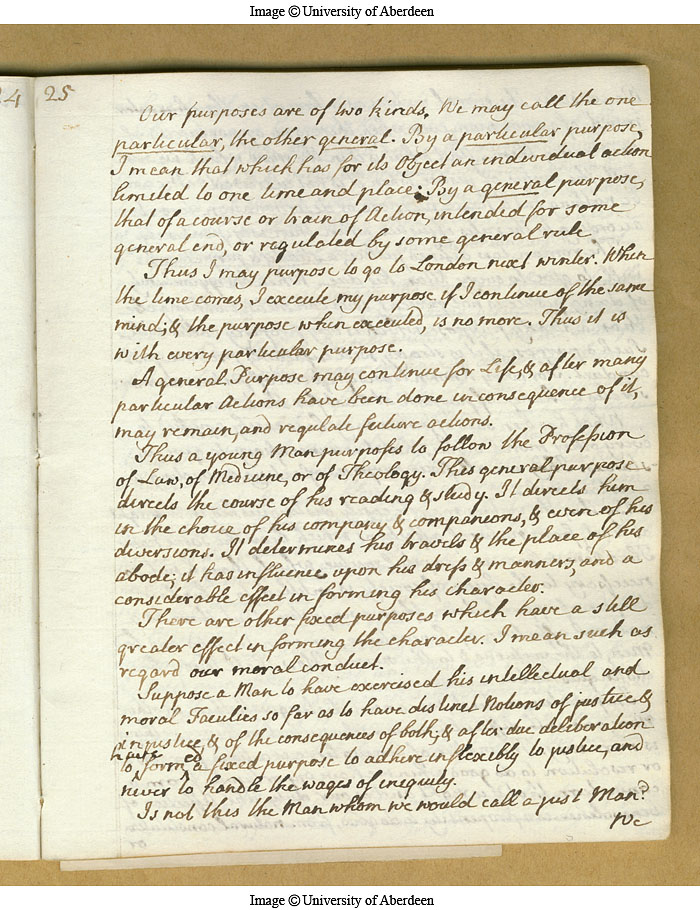 Image © University of Aberdeen
24
25
Our purposes are of two kinds. We may call the one
particular, the other general. By a particular purpose,
I mean that which has for its Object an individual action
limited to one time and place; By a general purpose,
that of a course or train of Action, intended for some
general end, or regulated by some general rule
Thus I may purpose to go to London next winter. When
the time comes, I execute my purpose if I continue of the same
mind; & the purpose when executed, is no more. Thus it is
with every particular purpose.
A general Purpose may continue for Life, & after many
particular Actions have been done in consequence of it,
may remain, and regulate future actions.
Thus a young Man purposes to follow the Profession
of Law, of Medicine, or of Theology. This general purpose
directs the course of his reading & study. It directs him
in the choice of his company & companions, & even of his
diversions. It determines his travels & the place of his
abode; it has influence upon his dress & manners, and a
considerable effect in forming his character.
There are other fixed purposes which have a still
greater effect in forming the character. I mean such as
regard our moral conduct.
Suppose a Man to have exercised his intellectual and
moral Faculies so far as to have distinct Notions of justice &
injustice, & of the consequences of both; & after due deliberation
to have formed a fixed purpose to adhere inflexibly to justice, and
never to handle the wages of inequity.
Is not this the Man whom we would call a just Man?
We
Image © University of Aberdeen